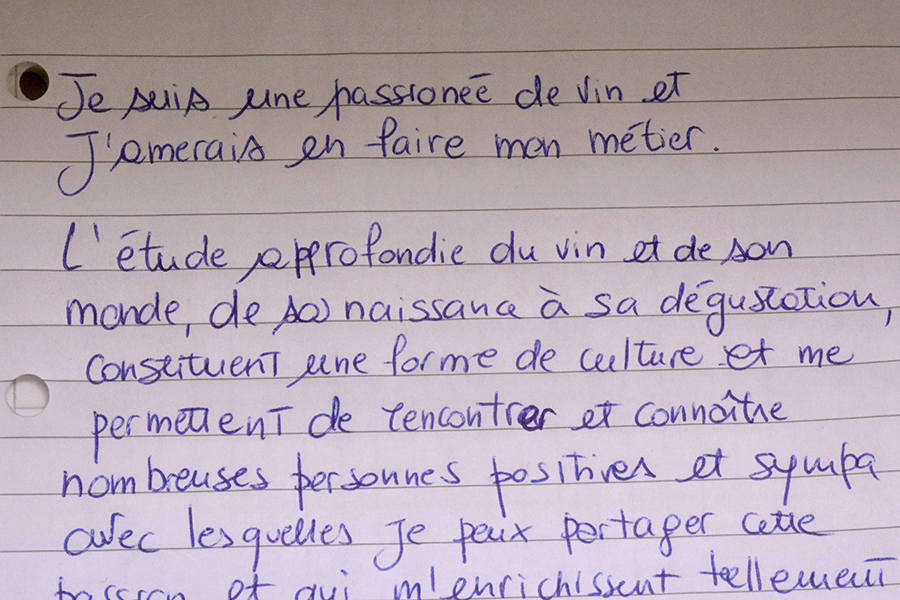 Je suis une passionée de vin et
J'amerais en faire mon métier.
L'étude approfondie du vin et de son
monde, de sa naissance à sa dégustation,
constituent une forme de culture et me
permettent de rencontrer et connaître
nombreuses personnes positives et sympa
avec lesquelles je peux partager cette
passion et qui m'enrichissent tellement